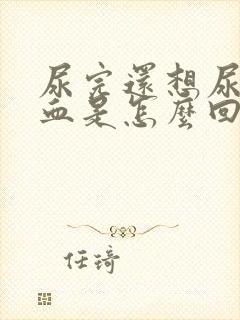 尿完還想尿
血是怎麼回
任琦